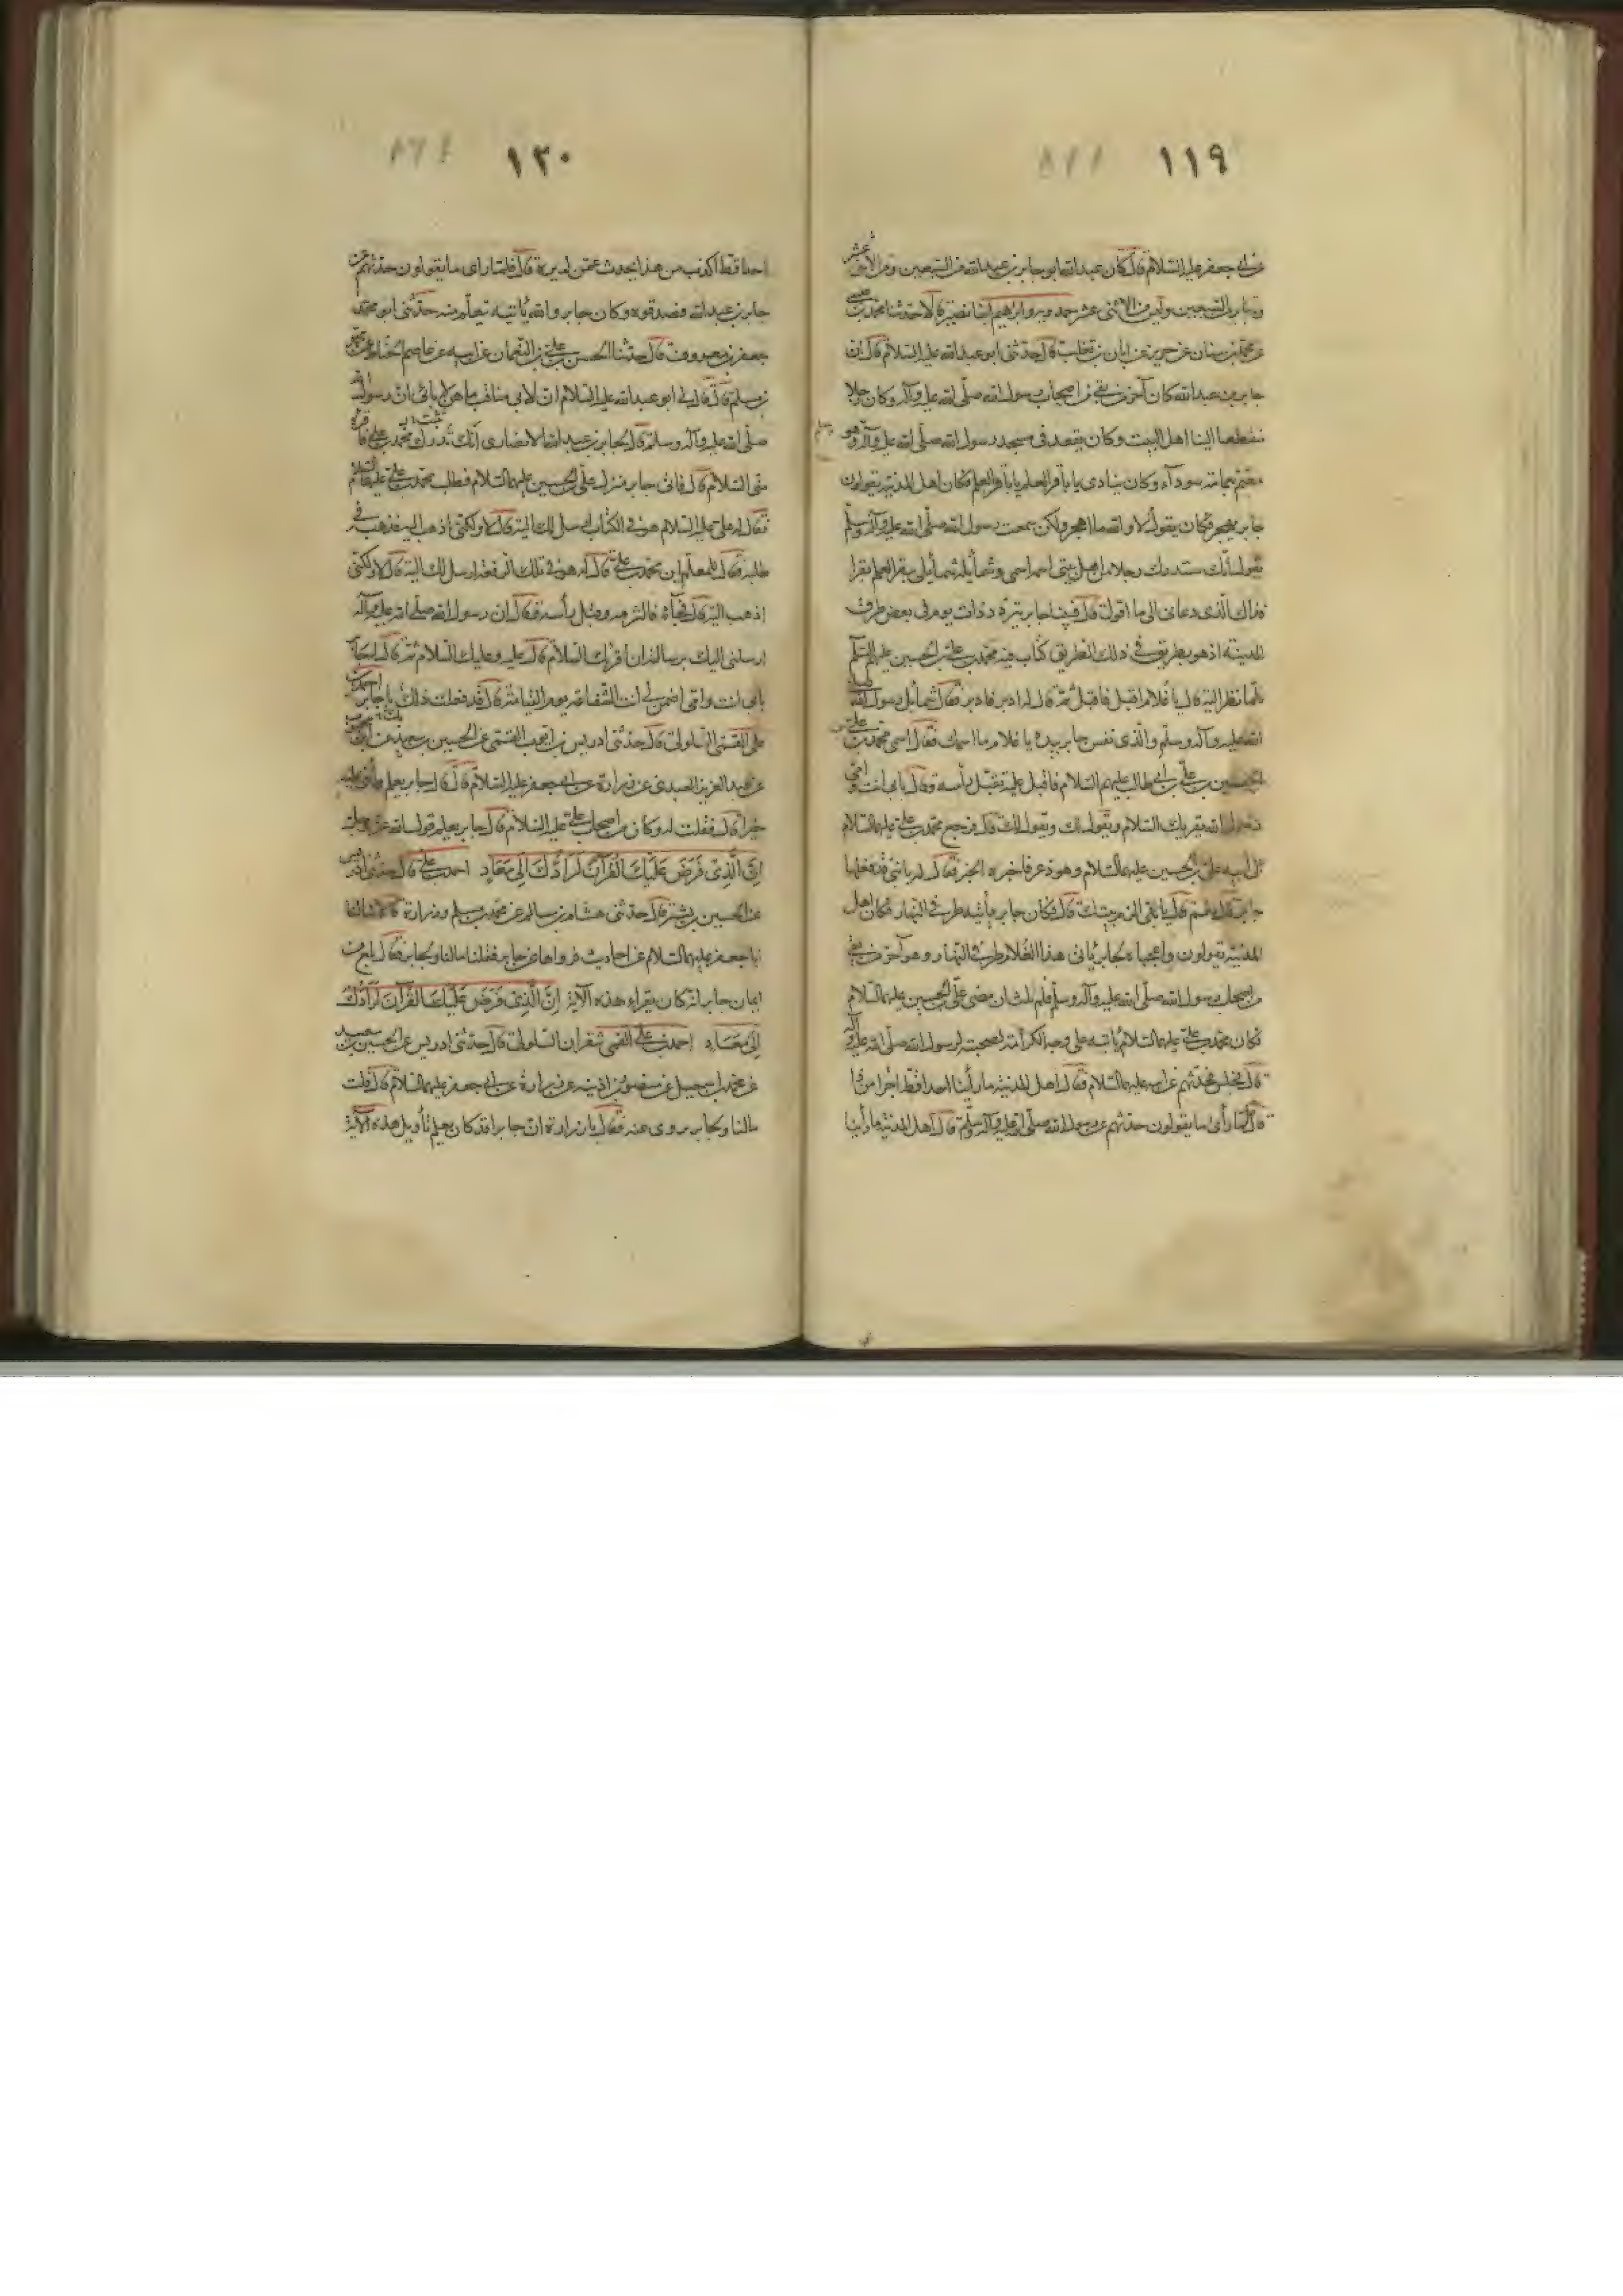 ١١٩
عن ابی جعفر علیه السلام قال کان عبدالله ابو جابر بن عبدالله من السبعین ومن الاثنی عشر
وجابر من السبعین ولیس من الاثنی عشر حمدویه وابراهیم ابنا نصیر قالا حدثنا محمد بن عیسی
عن محمد بن سنان عن حریز عن ابان بن تغلب قال حدثنی ابو عبدالله علیه السلام قال ان
جابر بن عبدالله کان آخر من بقی من اصحاب رسول الله صلّی الله علیه وآله وکان رجلا
منقطعا الینا اهل البیت وکان یقعد فی مسجد رسول الله صلّی الله علیه وآله وهو
معتم بعمامة سوداء وکان ینادی یا باقر العلم یا باقر العلم فکان اهل المدینة یقولون
جابر یهجر فکان یقول لا والله ما اهجر ولکن سمعت رسول الله صلّی الله علیه وآله وسلّم
یقول انّک ستدرک رجلا من اهل بیتی اسمه اسمی وشمائله شمائلی یبقر العلم بقرا
فذاک الّذی دعانی الی ما اقول قال فبینا جابر یتردد ذات یوم فی بعض طرق
المدینة اذ هو بطریق فی ذلک الطریق کتّاب فیه محمد بن علی بن الحسین علیهم السّلام
فلما نظر الیه قال یا غلام اقبل فاقبل ثم قال له ادبر فادبر فقال شمائل رسول الله صلی
الله علیه وآله وسلّم والّذی نفس جابر بیده یا غلام ما اسمک فقال اسمی محمد بن علی بن
الحسین بن علی بن ابی طالب علیهم السّلام فاقبل علیه یقبّل رأسه وقال بابی انت وامّی
رسول الله یقرئک السّلام ویقول لک ویقول لک قال فرجع محمد بن علی علیهما السّلام
الی ابیه علی بن الحسین علیهما السّلام وهو ذعر فاخبره الخبر فقال له یا بنیّ قد فعلها
جابر قال نعم قال یا بنیّ الزم بیتک قال فکان جابر یأتیه طرفی النهار فکان اهل
المدینة یقولون واعجباه لجابر یأتی هذا الغلام طرفی النهار وهو آخر من بقی
من اصحاب رسول الله صلّی الله علیه وآله وسلّم فلم یلبث ان مضی علی بن الحسین علیهما السّلام
فکان محمد بن علی علیهما السّلام یأتیه علی وجه الکرامة لصحبته لرسول الله صلّی الله علیه وآله
قال فجلس یحدّثهم عن ابیه علیهما السّلام فقال اهل المدینة ما رأینا احدا قط اجرأ من ذا
قال فلمّا رأی ما یقولون حدّثهم عن رسول الله صلّی الله علیه وآله وسلّم قال اهل المدینة ما رأینا
١٢٠
احدا قط اکذب من هذا یحدّث عمّن لم یره قال فلمّا رای ما یقولون حدّثهم عن
جابر بن عبدالله فصدقوه وکان جابر والله یأتیه یتعلّم منه حدّثنی ابو محمد
جعفر بن معروف قال حدثنا الحسن بن علی بن النعمان عن ابیه عن عاصم الحنّاط عن محمد
بن مسلم قال قال لی ابو عبدالله علیه السلام ان لابی مناقب ما هنّ لآبائی ان رسول الله
صلّی الله علیه وآله وسلّم قال لجابر بن عبدالله الانصاری انّک تدرک محمد بن علی فاقرأه
منّی السّلام قال فاتی جابر منزل علی بن الحسین علیهما السّلام فطلب محمد بن علی علیهما السلام
فقال له علی علیه السّلام هو فی الکتّاب ارسل لک الیه قال لا ولکنّی اذهب الیه فذهب فی
طلبه فقال للمعلّم این محمد بن علی قال له هو فی تلک الرفقة ارسل لک الیه قال لا ولکنّی
اذهب الیه قال فجاءه فالتزمه وقبّل رأسه وقال ان رسول الله صلّی الله علیه وآله
ارسلنی الیک برسالة ان اقرئک السّلام قال علیه وعلیک السّلام ثم قال له جابر
بابی انت وامّی اضمن لی انت الشّفاعة یوم القیامة قال قد فعلت ذلک یا جابر احمد بن
علی القمّی السّلولی قال حدّثنی ادریس بن ایوب القمّی عن الحسین بن سعید عن ابن محبوب
عن عبدالعزیز العبدی عن زرارة عن ابی جعفر علیه السّلام قال قال جابر یعلم واثنی علیه
خیرا قال فقلت له وکان من اصحاب علی علیه السّلام قال جابر یعلم قول الله عزّ وجلّ
اِنَّ الَّذِی فَرَضَ عَلَیْکَ الْقُرْآنَ لَرَادُّکَ اِلَی مَعَادٍ احمد بن علی قال حدّثنی ادریس
عن الحسین بن بشیر قال حدّثنی هشام بن سالم عن محمد بن مسلم وزرارة قالا سألنا
ابا جعفر علیهما السّلام عن احادیث فرواها عن جابر فقلنا ما لنا ولجابر فقال بلغ من
ایمان جابر انّه کان یقراء هذه الآیة اِنَّ الَّذِی فَرَضَ عَلَیْکَ الْقُرْآنَ لَرَادُّکَ
اِلَی مَعَادٍ احمد بن علی القمی شقران السّلولی قال حدّثنی ادریس عن الحسین بن سعید
عن محمد بن اسمعیل عن منصور بن اذینه عن زرارة عن ابی جعفر علیهما السّلام قال قلت
مالنا ولجابر یروی عنه فقال یا زرارة انّ جابرا قد کان یعلم تأویل هذه الآیة